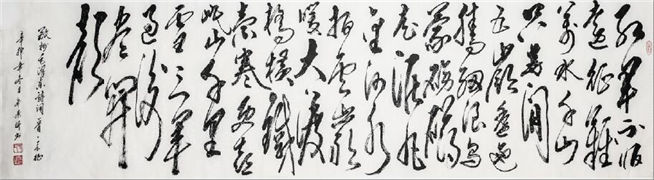 红军不怕
遠征難
萬水千山
只等闲
五岭逶迤
腾细浪乌
蒙磅礴
走泥丸
金沙水
拍雲崖
暖大渡
橋横鐵
索寒更喜
岷山千里
雪三军
過後
尽開
颜
敬抄毛泽东诗词一首长征
辛卯年冬月